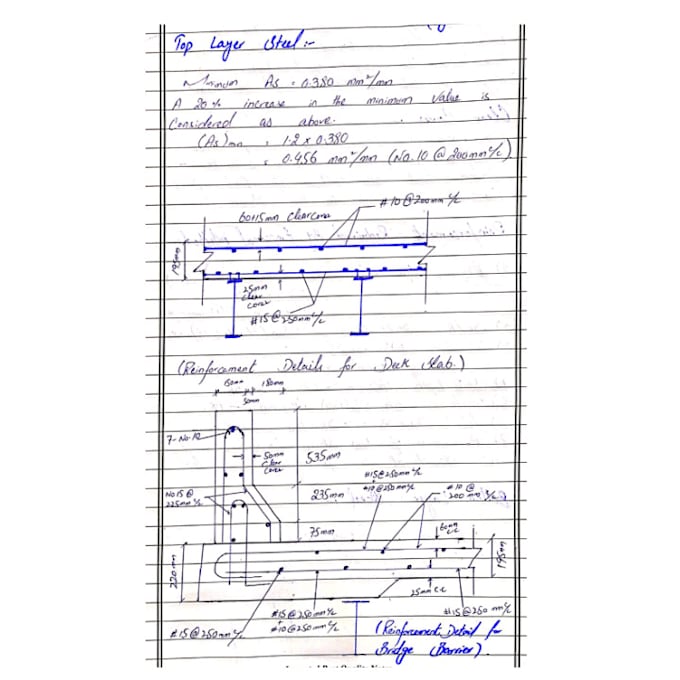 Top Layer Steel :-
Minimum As = 0.380 mm²/mm
A 20% increase in the minimum value is
Considered as above.
(As)min = 1.2 x 0.380
= 0.456 mm²/mm (No. 10 @ 200mm c/c)
#10@200mm c/c
60±15mm clear cover
195mm
25mm
clear
cover
#15@250mm c/c
(Reinforcement Details for Deck Slab.)
50mm
50mm
clear
cover
535mm
No 15 @
225mm c/c
235mm
#15@250mm c/c
#10@250mm c/c
#10 @
200 mm c/c
75mm
60mm
220mm
195mm
25mm c.c
#15@250mm c/c
#15@250mm c/c
#10@250mm c/c
#15@250 mm c/c
(Reinforcement Detail for
Bridge Barrier).